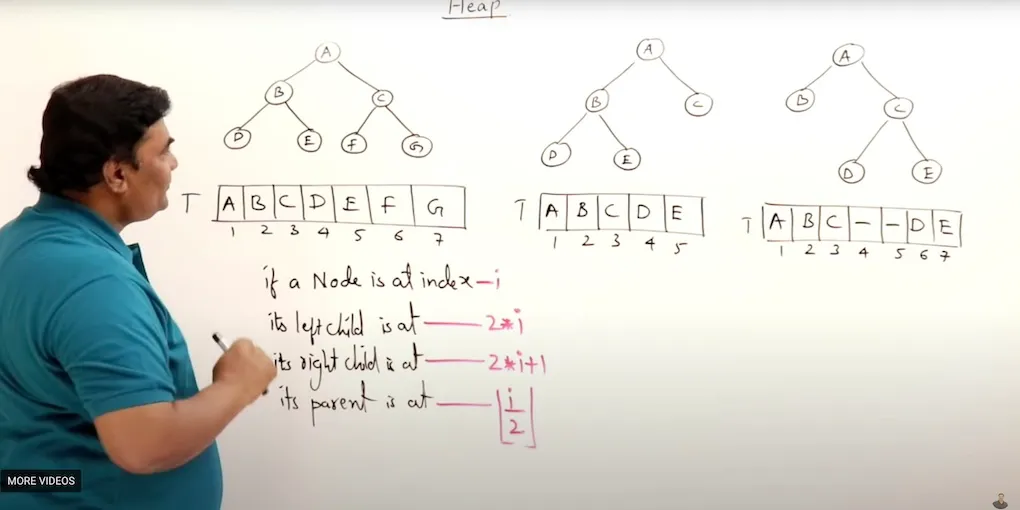 Heap
A
B C
D E F G
T A B C D E F G
1 2 3 4 5 6 7
A
B C
D E
T A B C D E
1 2 3 4 5
A
B C
D E
T A B C - - D E
1 2 3 4 5 6 7
if a Node is at index - i
its left child is at — 2*i
its right child is at — 2*i+1
its parent is at — ⌊i/2⌋
MORE VIDEOS